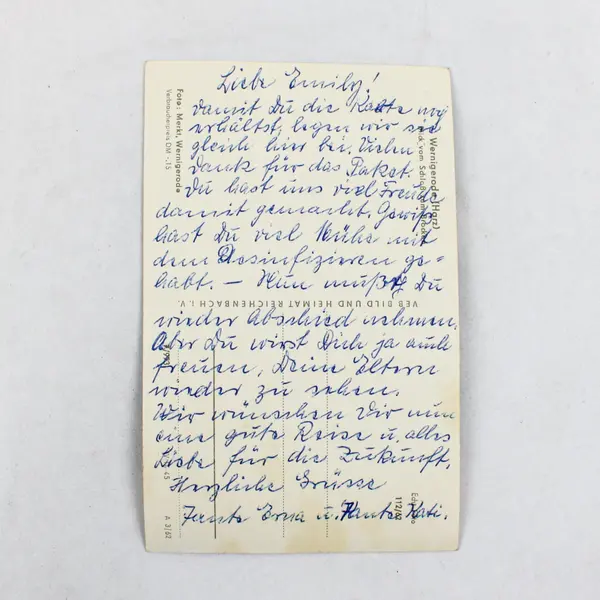 Liebe Emily!
Damit Du die Karte noch
erhältst, legen wir sie
gleich hier bei. Vielen
Dank für das Paket.
Du hast uns viel Freude
damit gemacht. Gewiß
hast Du viel Mühe mit
dem Desinfizieren ge=
habt. – Nun mußt Du
wieder Abschied nehmen.
Aber Du wirst Dich ja auch
freuen, Deine Eltern
wieder zu sehen.
Wir wünschen Dir nun
eine gute Reise u. alles
Liebe für die Zukunft.
Herzliche Grüsse
Tante Erna u. Tante Kati.
Foto: Merkl, Wernigerode
Verbraucherpreis DM -,15
Wernigerode (Harz)
vom Schloß
VEB BILD UND HEIMAT REICHENBACH I. V.
A 3/62
112/62